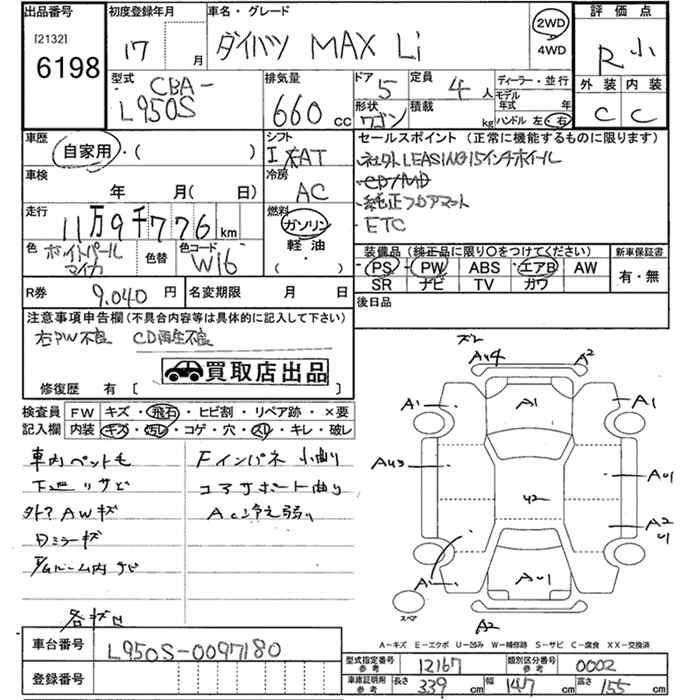 出品番号
[2132]
6198
初度登録年月
17 月
車名・グレード
ダイハツ MAX Li
2WD
4WD
評価点
R 小
外装 内装
C C
型式
CBA-
L950S
排気量
660 cc
ドア 5
定員 4 人
形状 ワゴン
積載 kg
ディーラー・並行
モデル年式 年
ハンドル 左・右
車歴
自家用・( )
シフト
車検
年 月( 日)
冷房
AC
走行
11万9千776 km
燃料
ガソリン
軽油
( )
色
ホワイトパール
マイカ
色替
色コード
W16
セールスポイント (正常に機能するものに限ります)
・ネクストLEASING15インチホイール
・CD/MD
・純正フロアマット
・ETC
装備品 (純正品に限り○をつけてください)
PS PW ABS エアB AW
SR ナビ TV カワ
新車保証書
有・無
R券 9,040 円
名変期限 月 日
後日品
注意事項申告欄 (不具合内容等は具体的に記入して下さい)
右PW不良 CD再生不良
買取店出品
修復歴 有 [ ]
検査員
記入欄
FW キズ・飛石・ヒビ割・リペア跡・×要
内装 キズ・汚レ・コゲ・穴・スレ・キレ・破レ
車内ペット毛
下廻りサビ
外マAWキズ
Dミラーキズ
各キズ凹
Fインパネ小曲り
コアサポート曲り
AC冷え弱い
ズレ
AU4
A2
A1
A1
A1
AU3
AU1
U2
A2
U1
A1
AU1
スペア
A2
A-キズ E-エクボ U-凹み W-補修跡 S-サビ C-腐食 XX-交換済
車台番号
L950S-0097180
登録番号
型式指定番号
参考
12167
類別区分番号
参考
0002
車庫証明附
参考
長さ 339 cm
幅 147 cm
高さ 155 cm